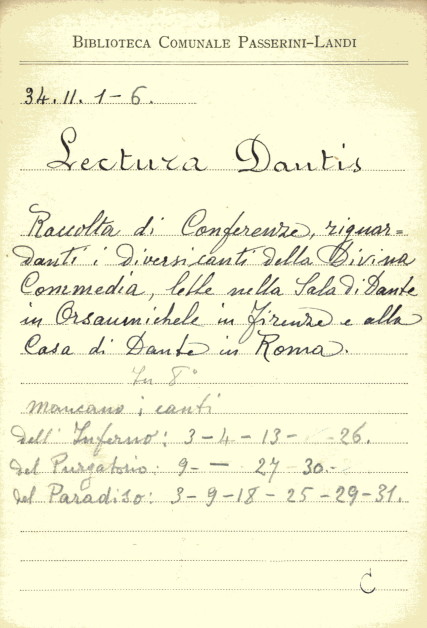 BIBLIOTECA COMUNALE PASSERINI-LANDI
34.II.1-6.
Lectura Dantis
Raccolta di Conferenze, riguar=
danti i diversi canti della Divina
Commedia, lette nella Sala di Dante
in Orsanmichele in Firenze e alla
Casa di Dante in Roma.
In 8°
mancano i canti
dell' Inferno: 3-4-13- -26.
del Purgatorio: 9- — 27 30.-
del Paradiso: 3-9-18-25-29-31.
C